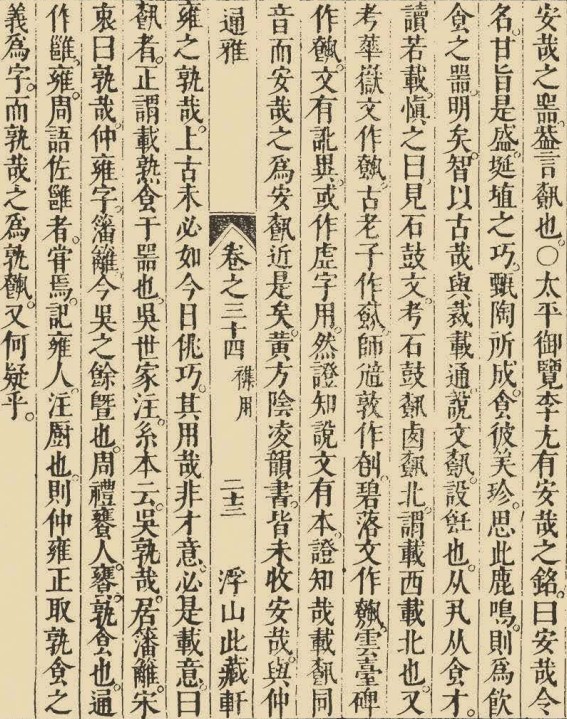 安哉之器盛言𩛥也○太平御覽李尤有安哉之銘曰安哉令
名甘旨是盛埏埴之巧甄陶所成食彼美珍思此鹿鳴則為飲
食之器明矣智以古哉與裁載通說文𩛥設飪也从丮从食才
讀若載慎之曰見石鼓文考石鼓𩛥鹵𩛥北謂載西載北也又
考華嶽文作 古老子作 師䢦敦作 碧落文作 雲臺碑
作 文有訛異或作虛字用然證知說文有本證知哉載𩛥同
音而安哉之為安𩛥近是矣黃方陰淩韻書皆未收安哉與仲
通雅 卷之三十四 襍用 二十三 浮山此藏軒
雍之孰哉上古未必如今日佻巧其用哉非才意必是載意曰
𩛥者正謂載熟食于器也吳世家注系本云吳孰哉居籓離宋
衷曰孰哉仲雍字籓離今吳之餘曁也周禮饔人饔孰食也通
作雝雍周語佐雝者甞焉記雍人注廚也則仲雍正取孰食之
義為字而孰哉之為孰𩛥又何疑乎